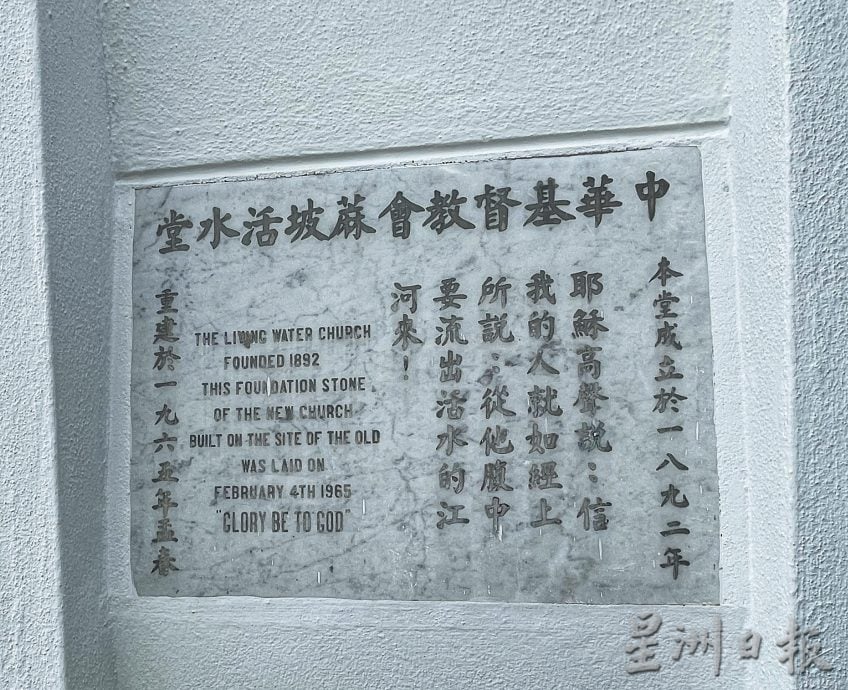 中華基督教會蔴坡活水堂
本堂成立於一八九二年
耶穌高聲説：信
我的人就如經上
所説：從他腹中
要流出活水的江
河來！
THE LIVING WATER CHURCH
FOUNDED 1892
THIS FOUNDATION STONE
OF THE NEW CHURCH
BUILT ON THE SITE OF THE OLD
WAS LAID ON
FEBRUARY 4TH 1965
"GLORY BE TO GOD"
重建於一九六五年孟春
星洲日报